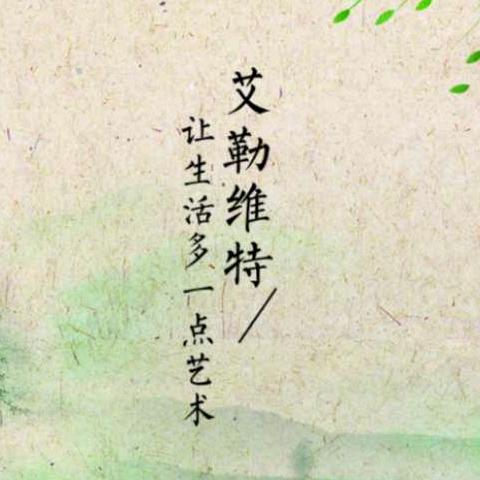 艾勒维特/
让生活多一点艺术